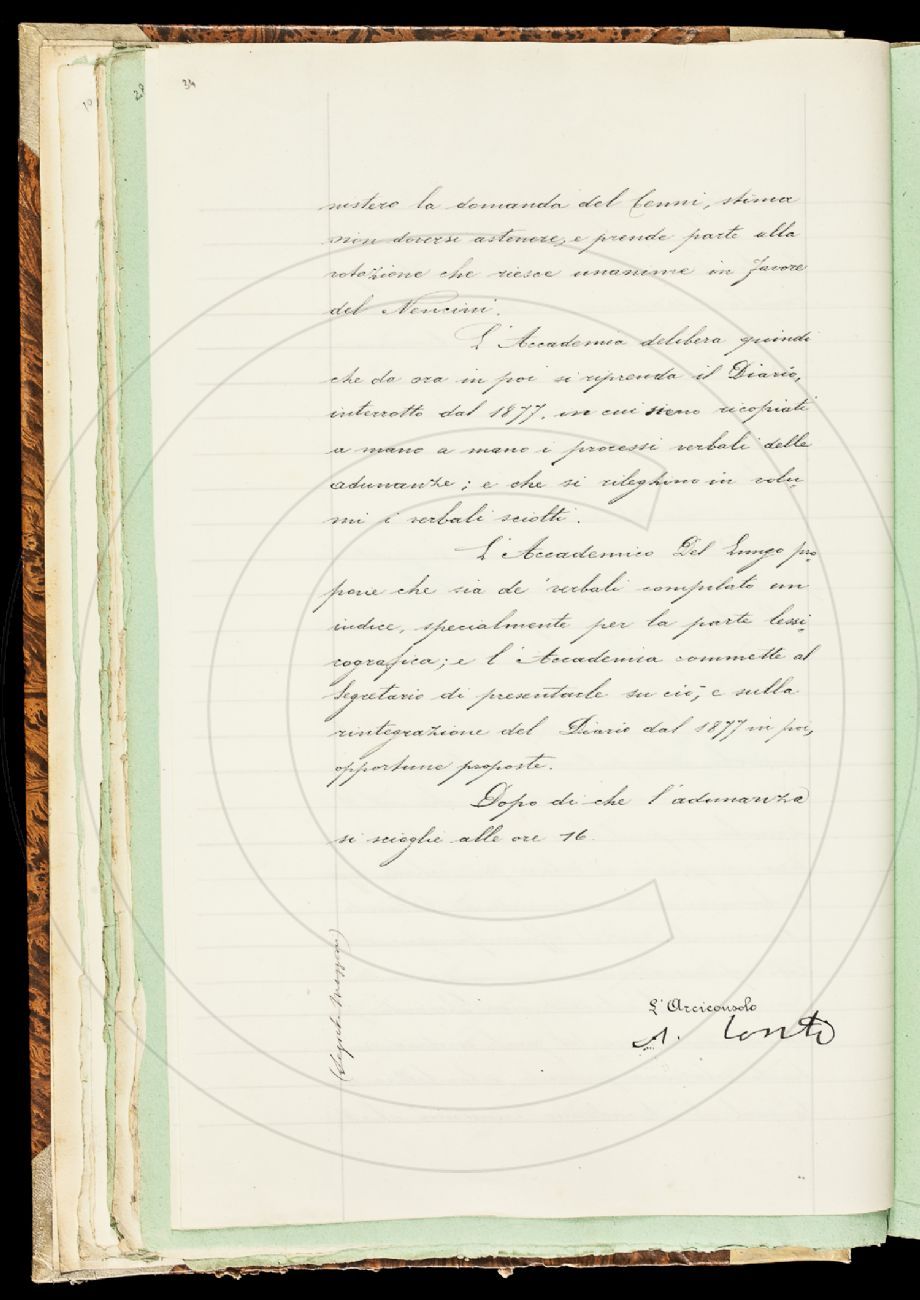 34
nistero la domanda del Cenni, stima
non doversi astenere, e prende parte alla
votazione che riesce unanime in favore
del Nencini.
L'Accademia delibera quindi
che da ora in poi si riprenda il Diario,
interrotto dal 1877, in cui sieno ricopiati
a mano a mano i processi verbali delle
adunanze; e che si rileghino in volu-
mi i verbali sciolti.
L'Accademico Del Lungo pro
pone che sia de' verbali compilato un
indice, specialmente per la parte lessi
cografica; e l'Accademia commette al
Segretario di presentarle su ciò, e sulla
rintegrazione del Diario dal 1877 in poi,
opportune proposte.
Dopo di che l'adunanza
si scioglie alle ore 16.
L'Arciconsolo
A. Conti